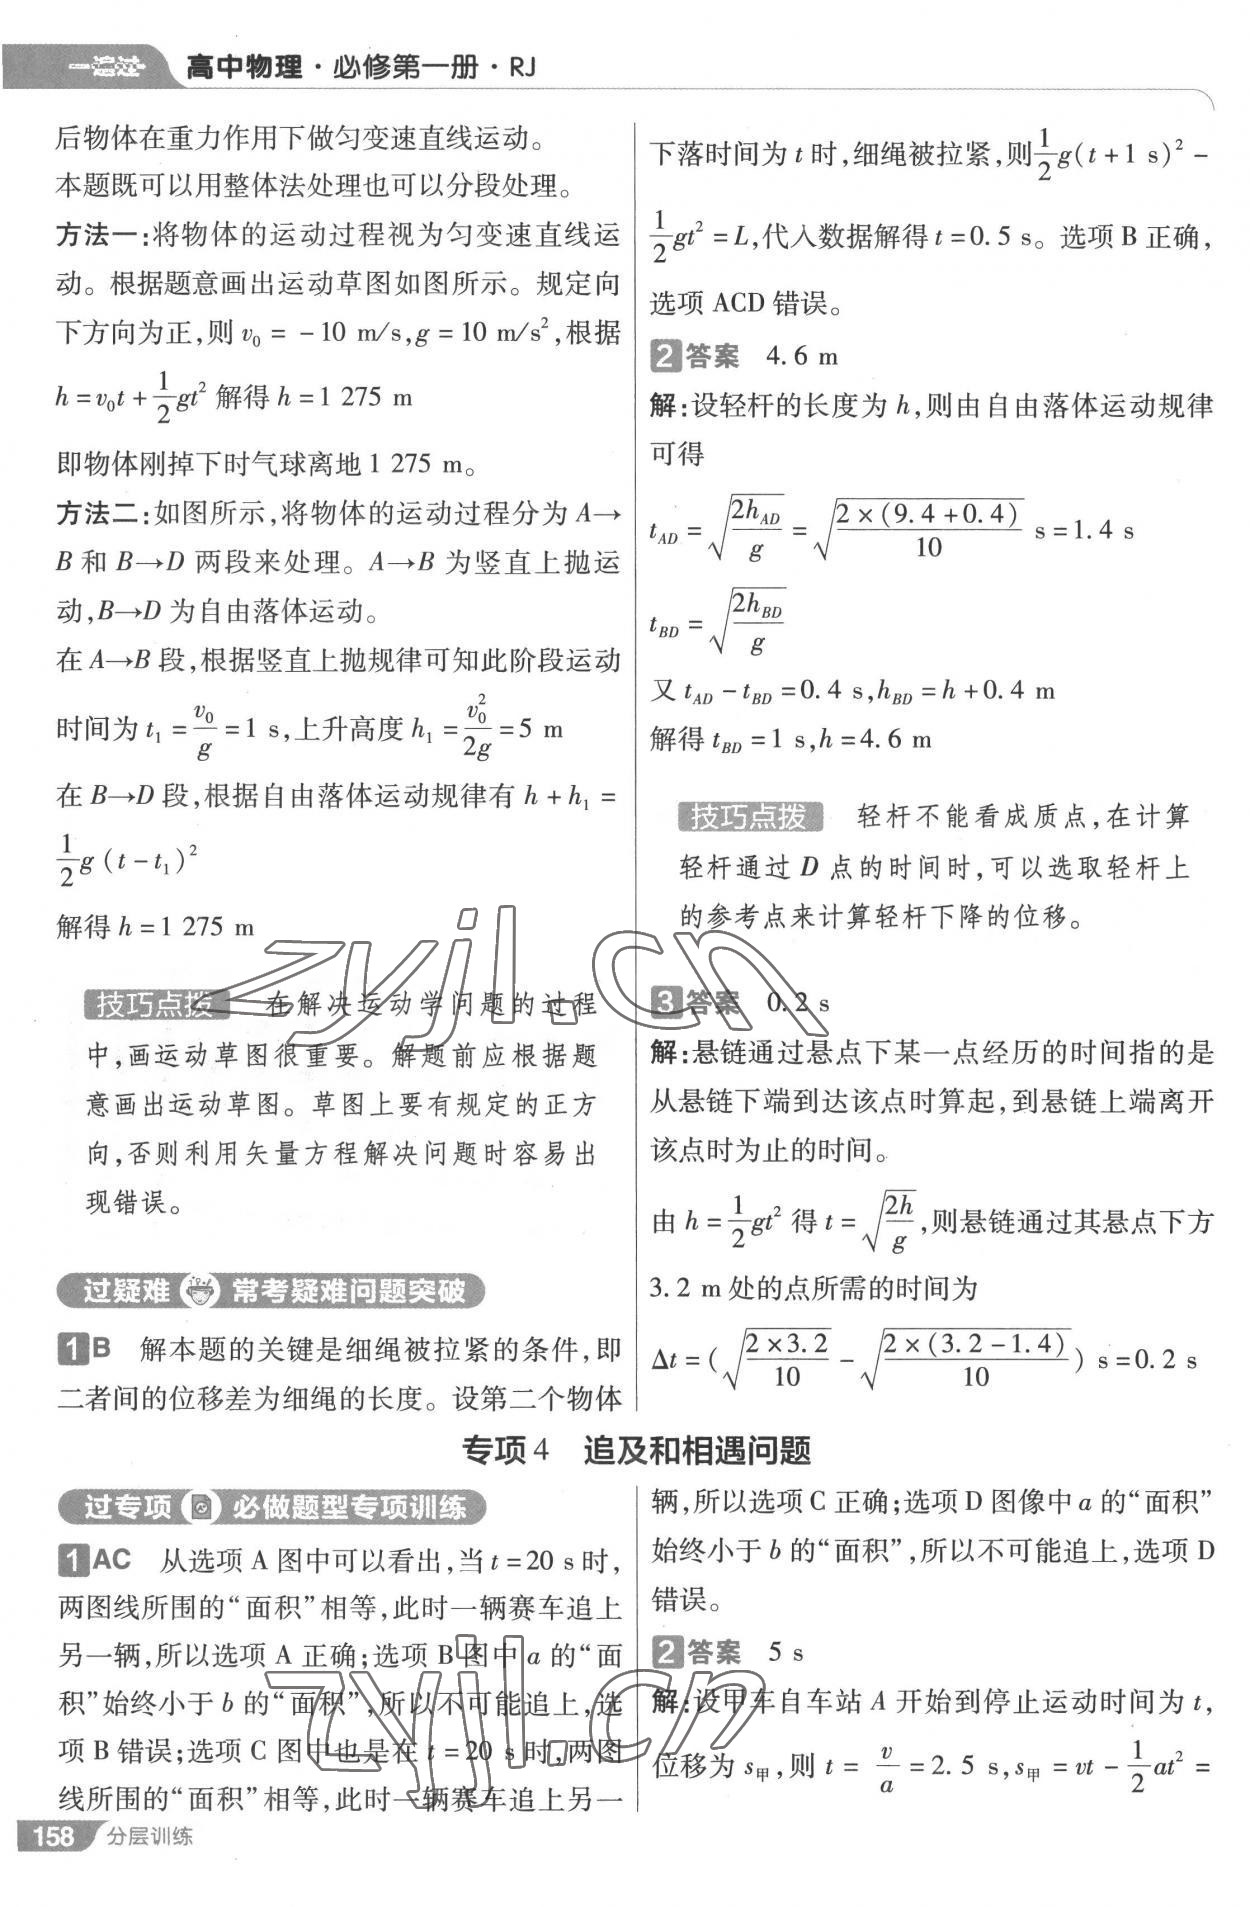 一遍过 高中物理·必修第一册·RJ
后物体在重力作用下做匀变速直线运动。
本题既可以用整体法处理也可以分段处理。
方法一:将物体的运动过程视为匀变速直线运
动。根据题意画出运动草图如图所示。规定向
下方向为正,则 v₀ = −10 m/s,g = 10 m/s²,根据
h = v₀t + 1/2 gt² 解得 h = 1 275 m
即物体刚掉下时气球离地 1 275 m。
方法二:如图所示,将物体的运动过程分为 A→
B 和 B→D 两段来处理。A→B 为竖直上抛运
动,B→D 为自由落体运动。
在 A→B 段,根据竖直上抛规律可知此阶段运动
时间为 t₁ = v₀/g = 1 s,上升高度 h₁ = v₀²/2g = 5 m
在 B→D 段,根据自由落体运动规律有 h + h₁ =
1/2 g (t − t₁)²
解得 h = 1 275 m
技巧点拨 在解决运动学问题的过程
中,画运动草图很重要。解题前应根据题
意画出运动草图。草图上要有规定的正方
向,否则利用矢量方程解决问题时容易出
现错误。
过疑难 常考疑难问题突破
1 B 解本题的关键是细绳被拉紧的条件,即
二者间的位移差为细绳的长度。设第二个物体
下落时间为 t 时,细绳被拉紧,则 1/2 g(t + 1 s)² −
1/2 gt² = L,代入数据解得 t = 0.5 s。选项 B 正确,
选项 ACD 错误。
2 答案 4.6 m
解:设轻杆的长度为 h,则由自由落体运动规律
可得
t_AD = √(2h_AD/g) = √(2×(9.4+0.4)/10) s = 1.4 s
t_BD = √(2h_BD/g)
又 t_AD − t_BD = 0.4 s,h_BD = h + 0.4 m
解得 t_BD = 1 s,h = 4.6 m
技巧点拨 轻杆不能看成质点,在计算
轻杆通过 D 点的时间时,可以选取轻杆上
的参考点来计算轻杆下降的位移。
3 答案 0.2 s
解:悬链通过悬点下某一点经历的时间指的是
从悬链下端到达该点时算起,到悬链上端离开
该点时为止的时间。
由 h = 1/2 gt² 得 t = √(2h/g),则悬链通过其悬点下方
3.2 m 处的点所需的时间为
Δt = (√(2×3.2/10) − √(2×(3.2−1.4)/10)) s = 0.2 s
专项 4 追及和相遇问题
过专项 必做题型专项训练
1 AC 从选项 A 图中可以看出,当 t = 20 s 时,
两图线所围的“面积”相等,此时一辆赛车追上
另一辆,所以选项 A 正确;选项 B 图中 a 的“面
积”始终小于 b 的“面积”,所以不可能追上,选
项 B 错误;选项 C 图中也是在 t = 20 s 时,两图
线所围的“面积”相等,此时一辆赛车追上另一
辆,所以选项 C 正确;选项 D 图像中 a 的“面积”
始终小于 b 的“面积”,所以不可能追上,选项 D
错误。
2 答案 5 s
解:设甲车自车站 A 开始到停止运动时间为 t,
位移为 s甲,则 t = v/a = 2.5 s,s甲 = vt − 1/2 at² =
158 分层训练
zyjl.cn
zyjl.cn